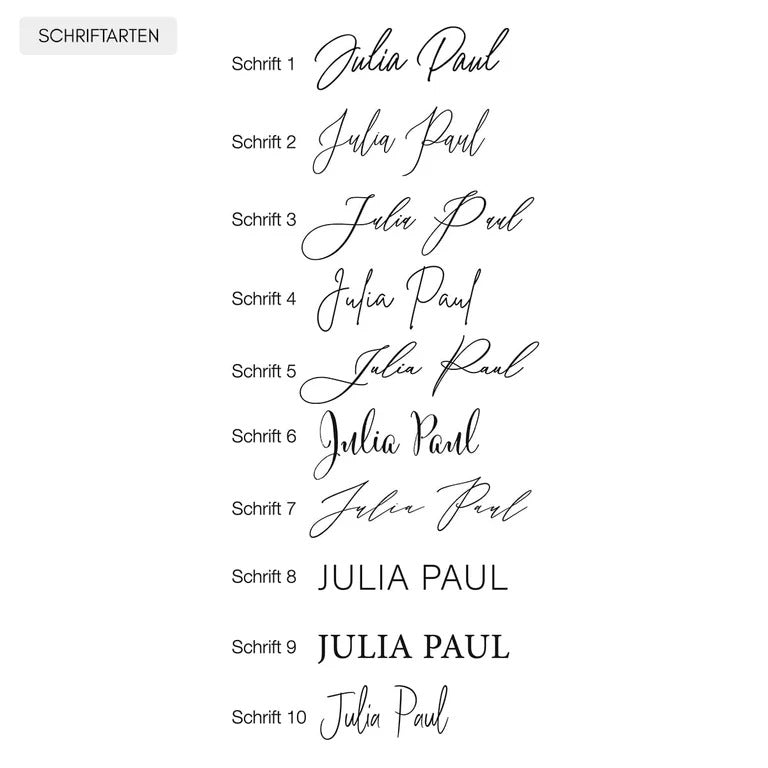 SCHRIFTARTEN
Schrift 1 Julia Paul
Schrift 2 Julia Paul
Schrift 3 Julia Paul
Schrift 4 Julia Paul
Schrift 5 Julia Paul
Schrift 6 Julia Paul
Schrift 7 Julia Paul
Schrift 8 JULIA PAUL
Schrift 9 JULIA PAUL
Schrift 10 Julia Paul